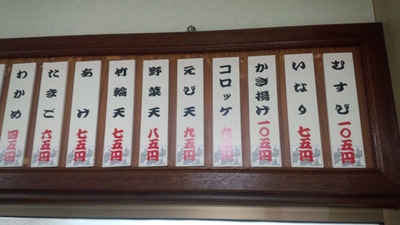 むすび 一〇五円
いなり 七五円
かき揚げ 一〇五円
コロッケ 九五円
えび天 九五円
野菜天 八五円
竹輪天 七五円
あげ 七五円
たまご 六五円
わかめ 四五円